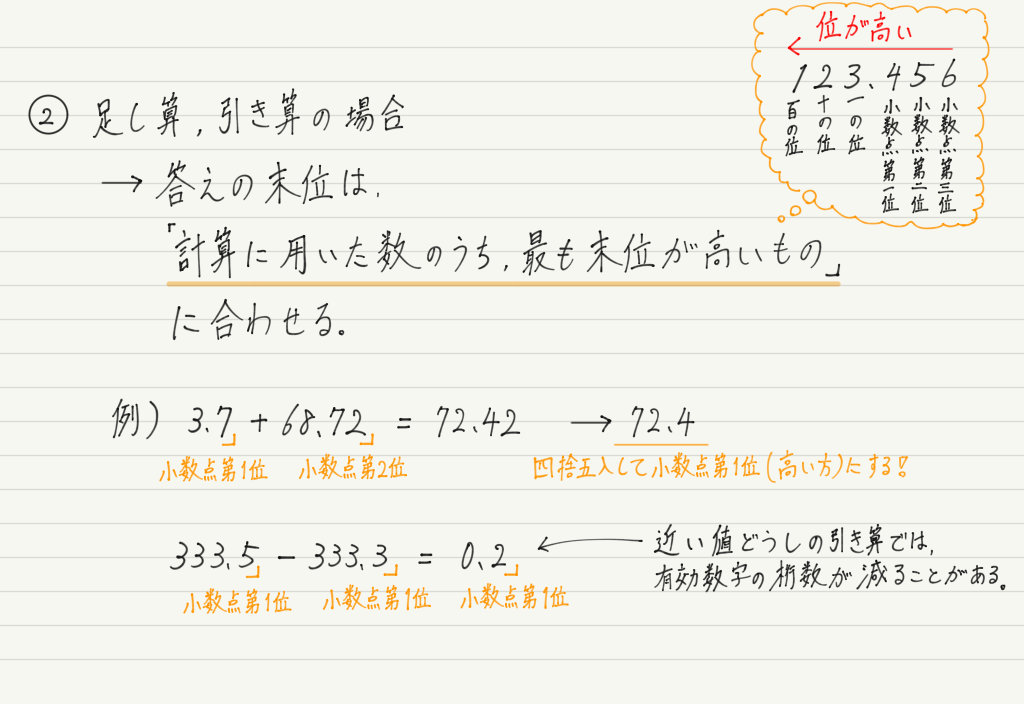 位が高い
123.456
百の位 十の位 一の位 小数点第一位 小数点第二位 小数点第三位
② 足し算,引き算の場合
→ 答えの末位は,
「計算に用いた数のうち,最も末位が高いもの」
に合わせる。
例) 3.7 + 68.72 = 72.42 → 72.4
小数点第1位 小数点第2位 四捨五入して小数点第1位(高い方)にする!
333.5 - 333.3 = 0.2 ← 近い値どうしの引き算では,
有効数字の桁数が減ることがある。
小数点第1位 小数点第1位 小数点第1位